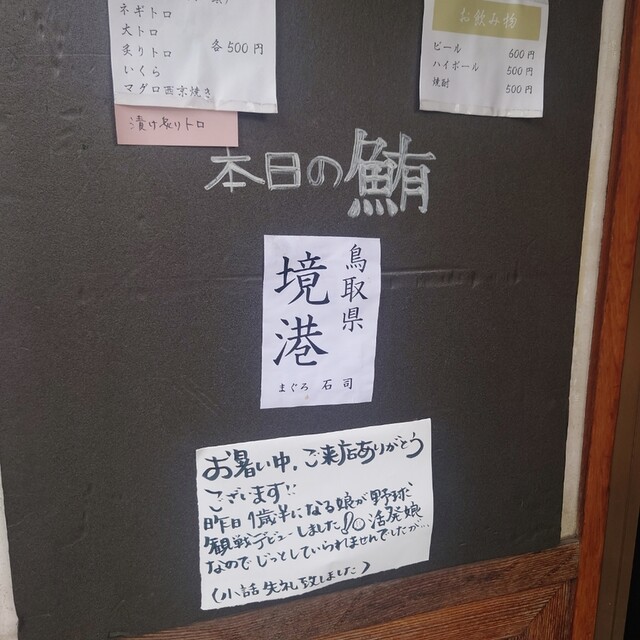 ネギトロ
大トロ
炙りトロ 各500円
いくら
マグロ西京焼き
漬け炙りトロ
お飲み物
ビール 600円
ハイボール 500円
焼酎 500円
本日の鮪
鳥取県
境港
まぐろ 石司
お暑い中、ご来店ありがとう
ございます!!
昨日1歳半になる娘が野球
観戦デビューしました!! 活発娘
なのでじっとしていられませんでしたが…
(小話失礼致しました)